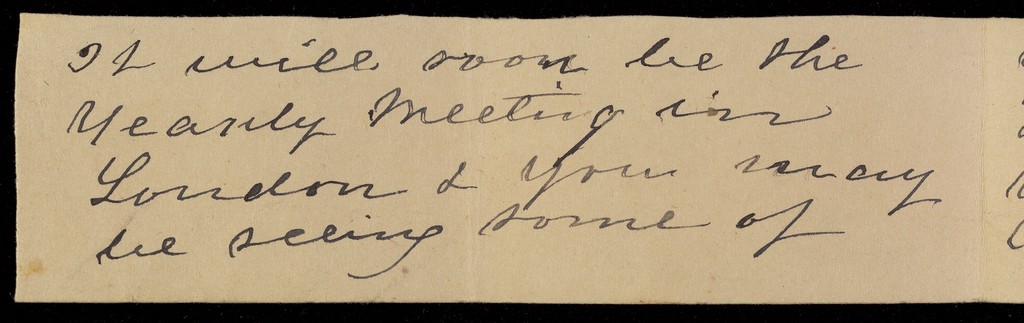 It will soon be the
Yearly Meeting in
London & you may
be seeing some of